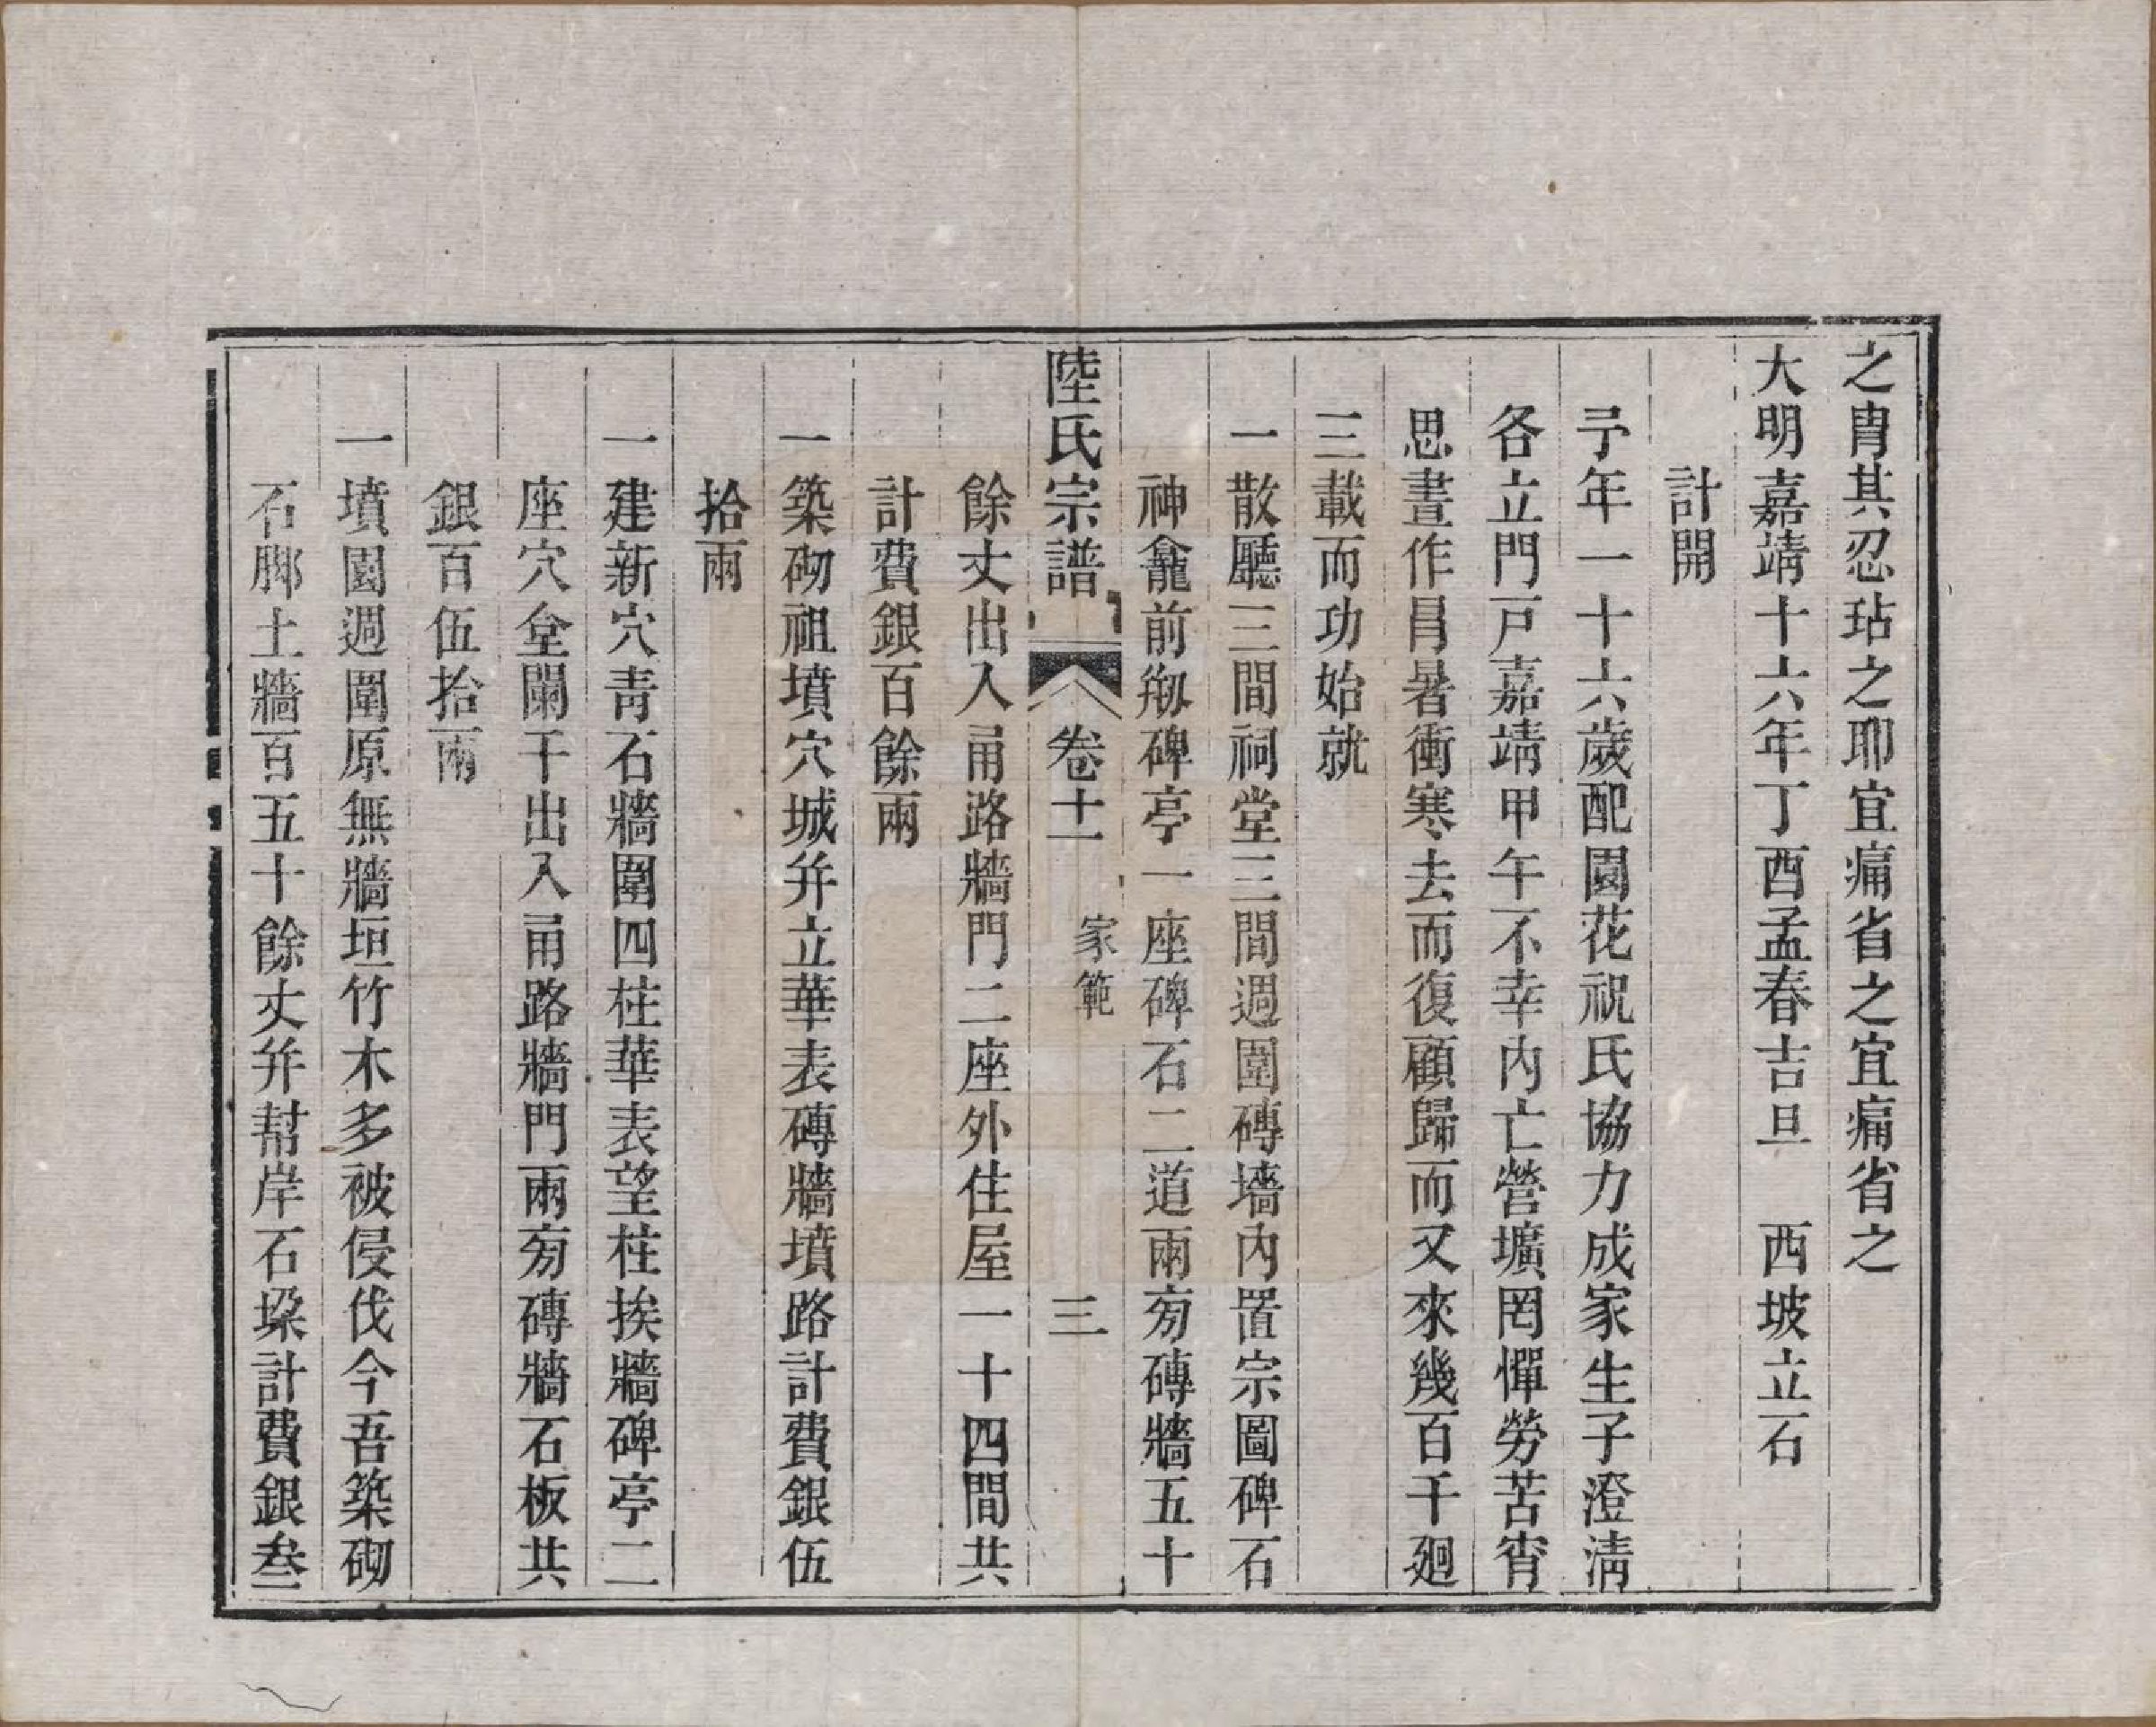 之胄其忍玷之耶宜痛省之宜痛省之
大明嘉靖十六年丁酉孟春吉旦　西坡立石
計開
予年一十六歲配園花祝氏協力成家生子澄淸
各立門戸嘉靖甲午不幸内亡營壙罔憚勞苦宵
思晝作昌暑衝寒去而復顧歸而又來幾百千廻
三載而功始就
一散廳三間祠堂三間週圍磚墻内置宗圖碑石
神龕前剏碑亭一座碑石二道兩旁磚牆五十
陸氏宗譜　卷十一　家範　三
餘丈出入甬路牆門二座外住屋一十四間共
計費銀百餘兩
一築砌祖墳穴城并立華表磚牆墳路計費銀伍
拾兩
一建新穴靑石牆圍四柱華表望柱挨牆碑亭二
座穴坌闌干出入甬路牆門兩旁磚牆石板共
銀百伍拾兩
一墳園週圍原無牆垣竹木多被侵伐今吾築砌
石脚土牆百五十餘丈并幇岸石垜計費銀叁